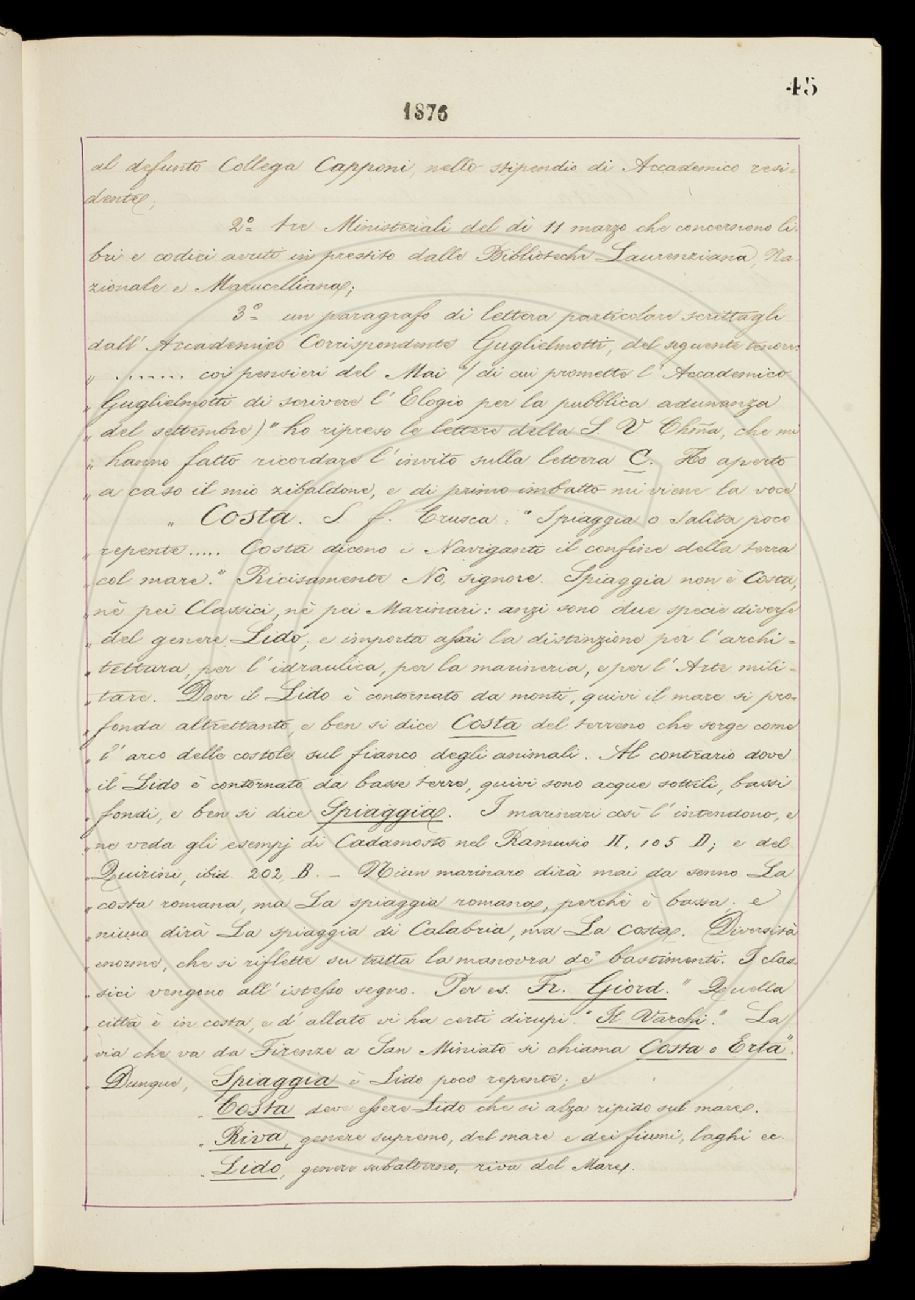 45
1876
al defunto Collega Capponi, nello stipendio di Accademico resi-
dente;
2º tre Ministeriali del dì 11 marzo che concernono li-
bri e codici avuti in prestito dalle Biblioteche Laurenziana, Na-
zionale e Marucelliana;
3º un paragrafo di lettera particolare scrittagli
dall' Accademico Corrispondente Guglielmotti, del seguente tenore:
" ....... coi pensieri del Mai " (di cui promette l' Accademico
" Guglielmotti di scrivere l' Elogio per la pubblica adunanza
" del settembre) " ho ripreso le lettere della S V Chma, che mi
" hanno fatto ricordare l' invito sulla lettera C. Ho aperto
" a caso il mio zibaldone, e di primo imbatto mi viene la voce
" Costa. S. f. Crusca: " Spiaggia o Salita poco
" repente..... Costa dicono i Naviganti il confine della terra
" col mare." Ricisamente No, signore. Spiaggia non è Costa,
" nè pei Classici, nè pei Marinari: anzi sono due specie diverse
" del genere Lido, e importa assai la distinzione per l' archi-
" tettura, per l' idraulica, per la marineria, e per l' Arte mili-
" tare. Dove il Lido è contornato da monti, quivi il mare si pro-
" fonda altrettanto, e ben si dice Costa del terreno che sorge come
" l' arco delle costole sul fianco degli animali. Al contrario dove
" il Lido è contornato da basse terre, quivi sono acque sottili, bassi
" fondi, e ben si dice Spiaggia. I marinari così l' intendono, e
" ne veda gli esempj di Cadamosto nel Ramusio II, 105 D; e del
" Quirini, ibid. 202, B. – Niun marinaro dirà mai da senno La
" costa romana, ma La spiaggia romana, perchè è bassa; e
" niuno dirà La spiaggia di Calabria, ma La costa. Diversità
" enorme, che si riflette su tutta la manovra de' bastimenti. I clas-
" sici vengono all' istesso segno. Per es. Fr. Giord. " Quella
" città è in costa, e d' allato vi ha certi dirupi." Il Varchi." La
" via che va da Firenze a San Miniato si chiama Costa o Erta".
" Dunque, Spiaggia è Lido poco repente; e
" Costa deve essere Lido che si alza ripido sul mare.
" Riva, genere supremo, del mare e dei fiumi, laghi ec.
" Lido, genere subalterno, riva del Mare.